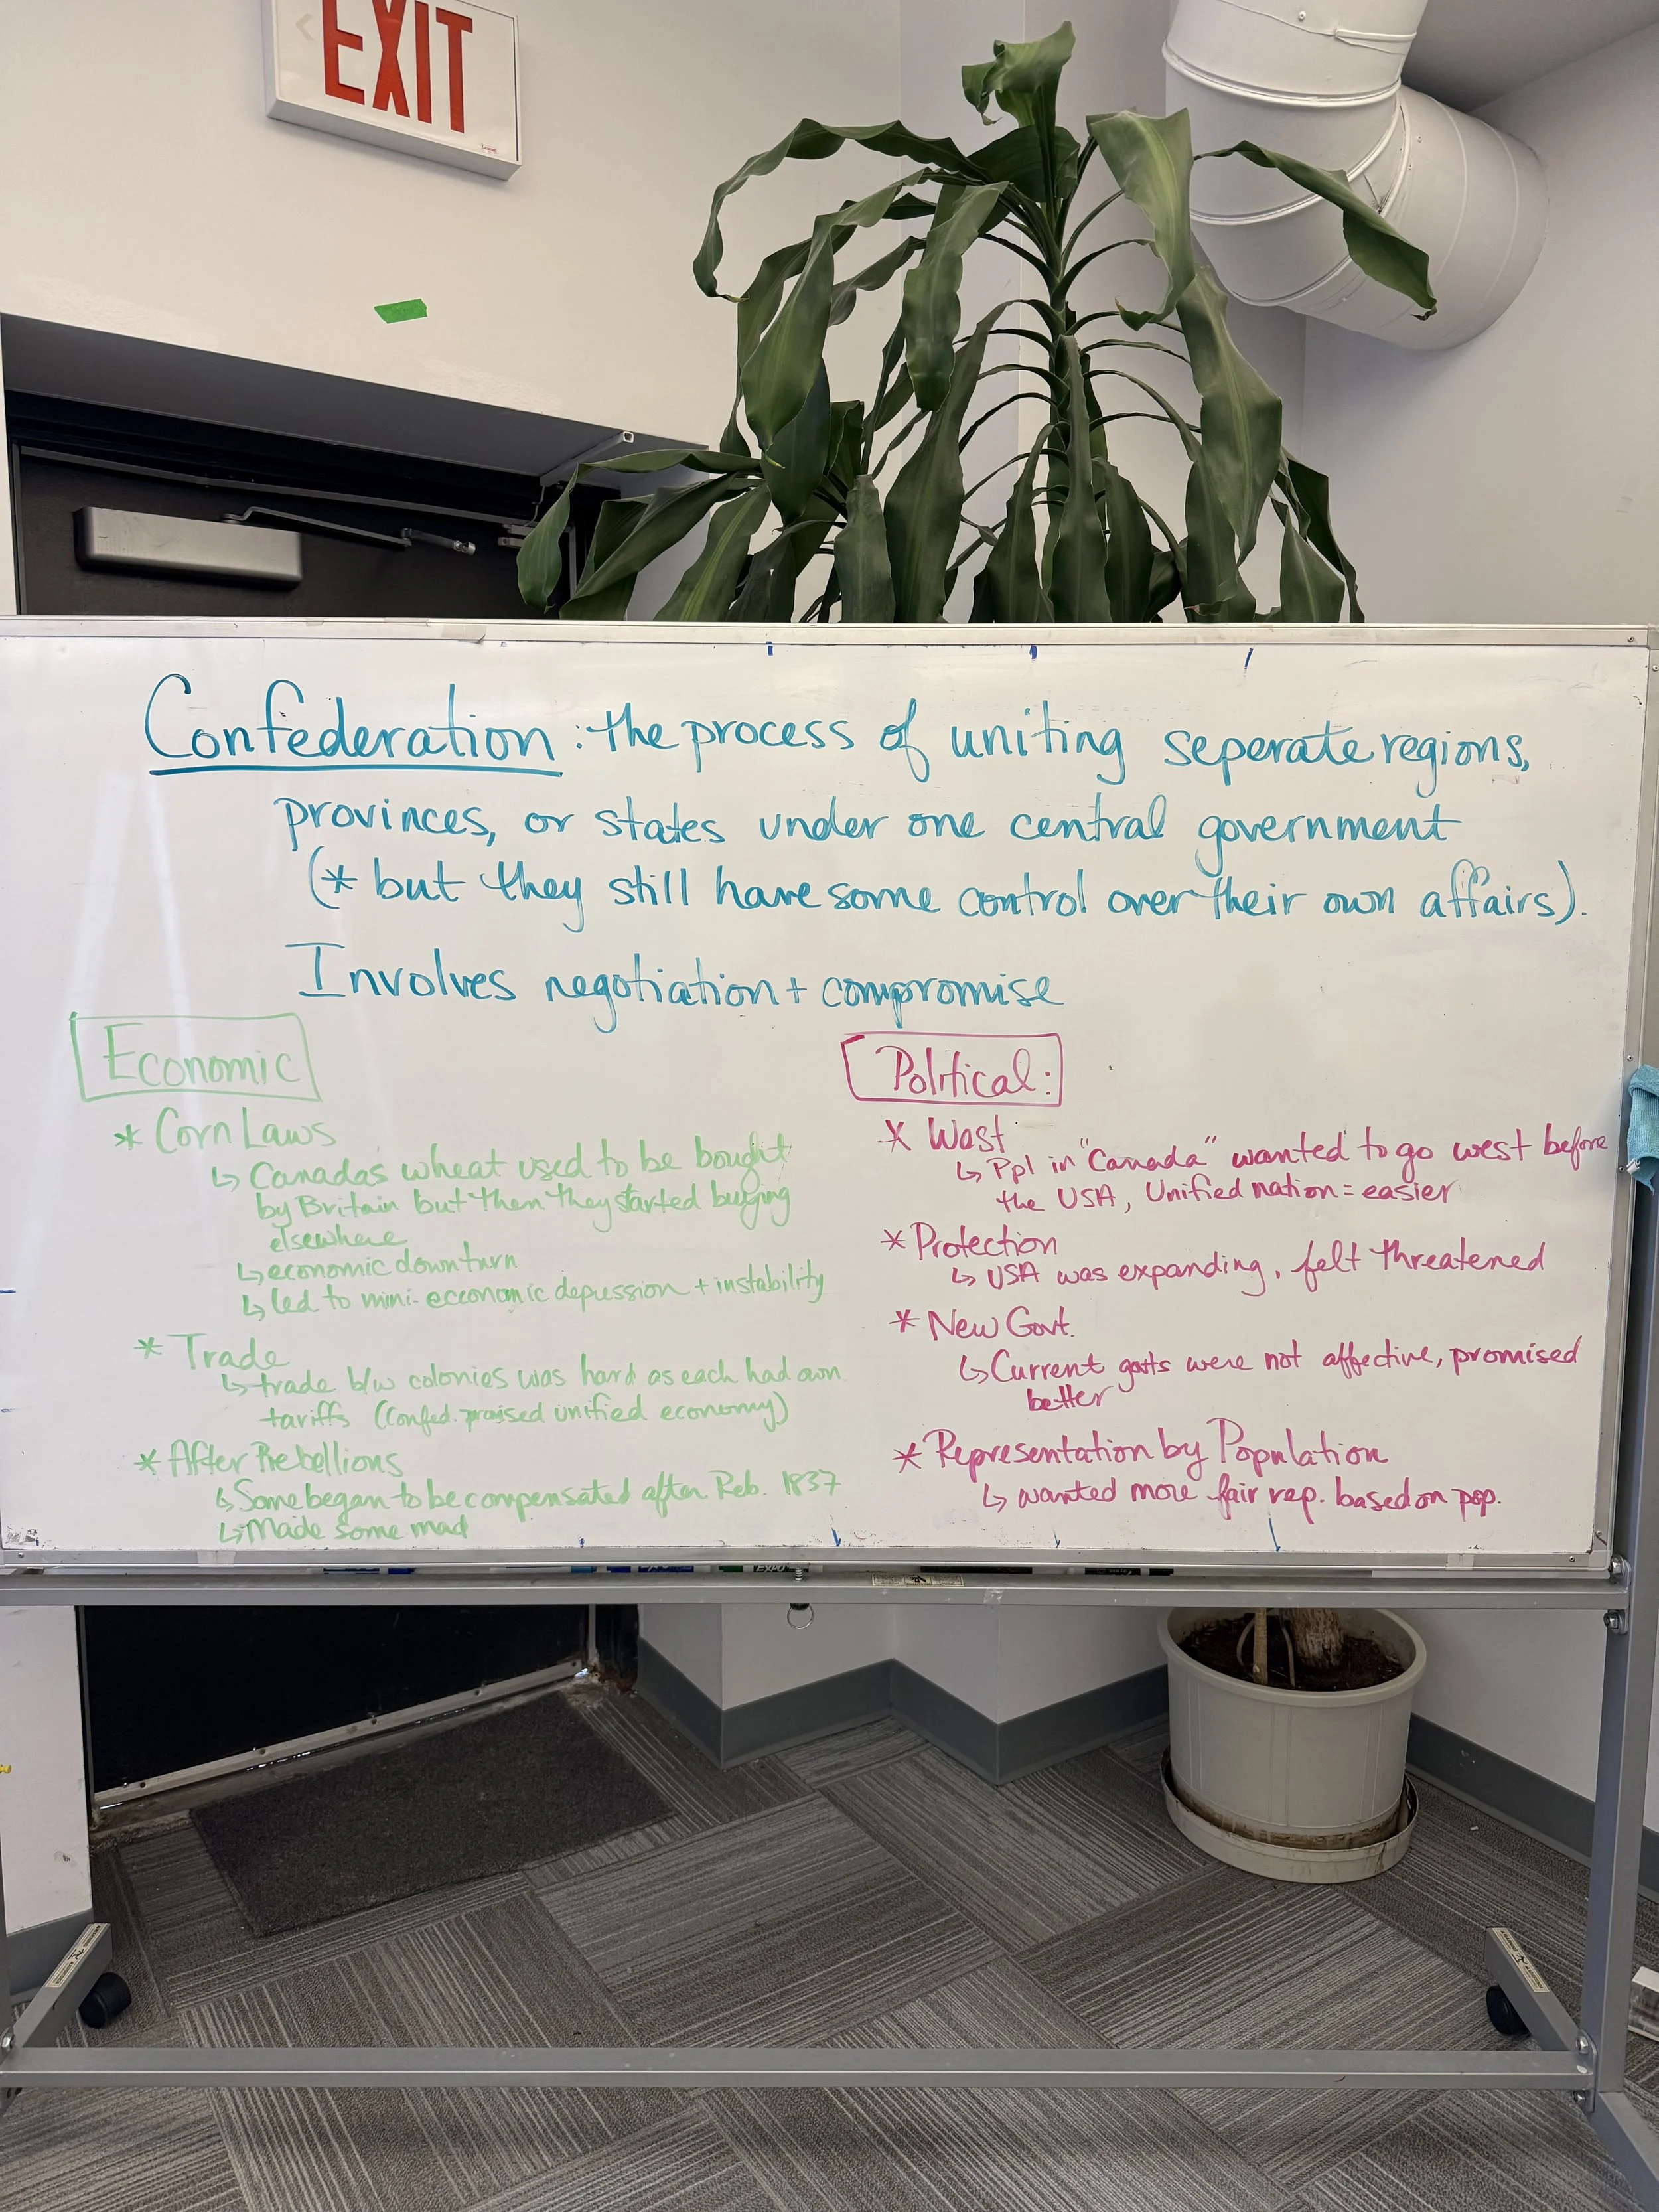 EXIT
Confederation: the process of uniting seperate regions,
provinces, or states under one central government
(* but they still have some control over their own affairs).
Involves negotiation + compromise
Economic
* Corn Laws
↳ Canadas wheat used to be bought
by Britain but then they started buying
elsewhere
↳ economic downturn
↳ led to mini-economic depression + instability
* Trade
↳ trade b/w colonies was hard as each had own
tariffs (Confed. praised unified economy)
* After Rebellions
↳ Some began to be compensated after Reb. 1837
↳ Made some mad
Political:
* West
↳ Ppl in "Canada" wanted to go west before
the USA, Unified nation = easier
* Protection
↳ USA was expanding, felt threatened
* New Govt.
↳ Current govts were not affective, promised
better
* Representation by Population
↳ wanted more fair rep. based on pop.
EXPO